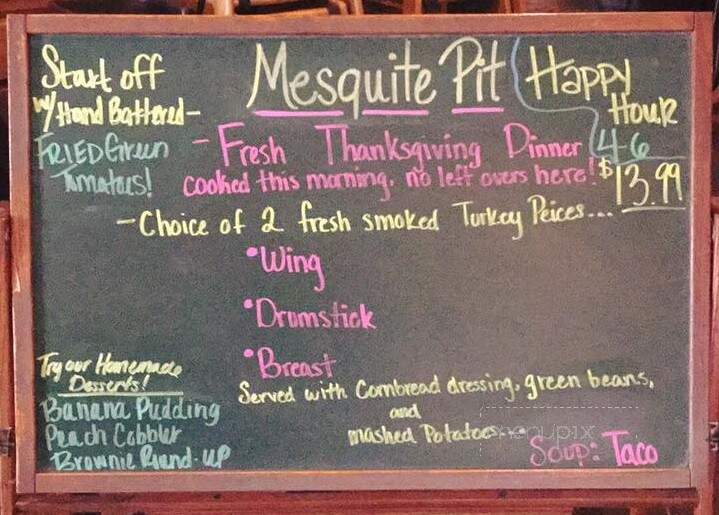 Mesquite Pit
Happy
Hour
4-6
Start off
w/ Hand Battered -
FRIED Green
Tomatoes!
- Fresh Thanksgiving Dinner
cooked this morning, no left overs here!
$13.99
- Choice of 2 fresh smoked Turkey Peices...
• Wing
• Drumstick
• Breast
Served with Cornbread dressing, green beans,
and
mashed Potatoes
Try our Homemade
Desserts!
Banana Pudding
Peach Cobbler
Brownie Round-UP
Soup: Taco
menupix